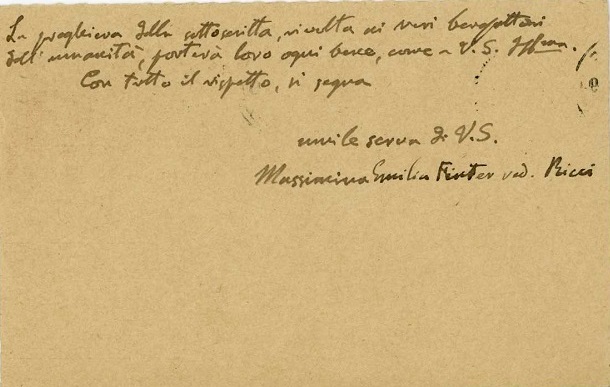 La preghiera della sottoscritta, rivolta ai veri benefattori
dell'umanità, porterà loro ogni bene, come a V.S. Ill.ma.
Con tutto il rispetto, si segna
umile serva di V.S.
Massimina Emilia Finter ved. Ricci